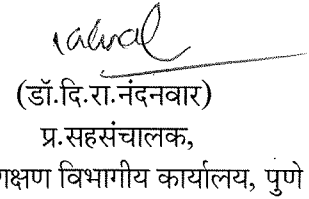 (डॉ.दि.रा.नंदनवार)
प्र.सहसंचालक,
विभागीय कार्यालय, पुणे